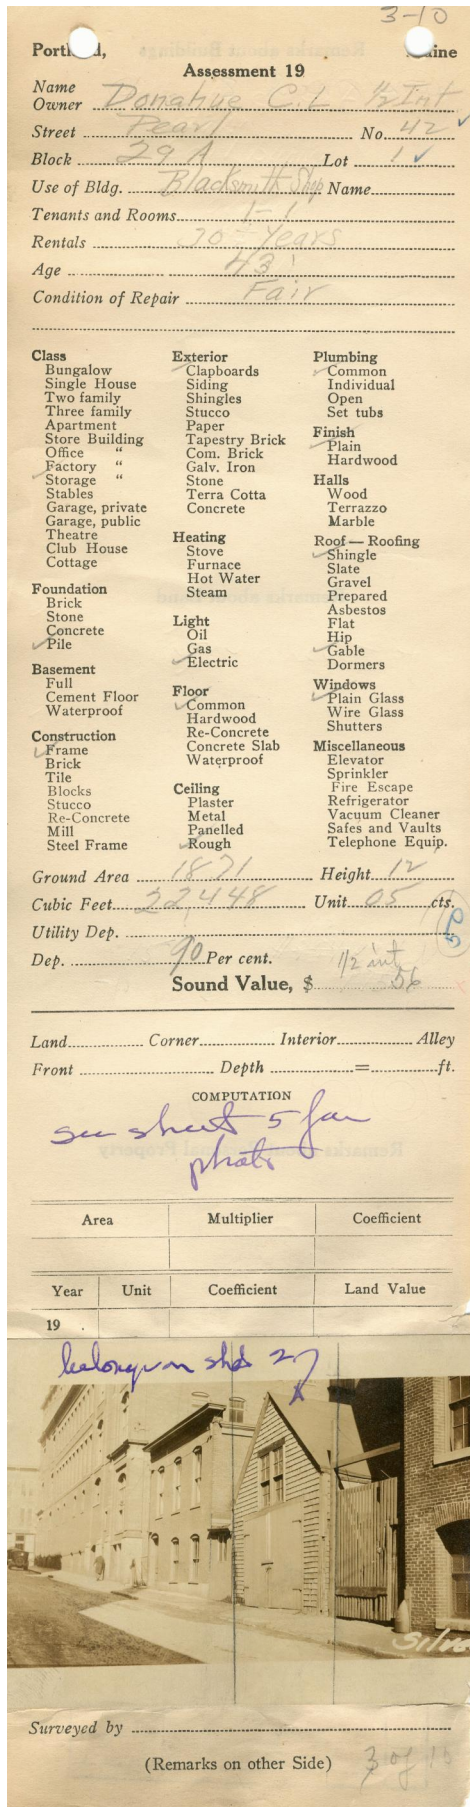 3-10
Portland, Maine
Assessment 19
Name
Owner Donahue C.L. 1/2 Int
Street Pearl No. 42 ✓
Block 29 A Lot 1 ✓
Use of Bldg. Blacksmith Shop Name
Tenants and Rooms 1-1
Rentals 30 - Years
Age 43
Condition of Repair Fair
Class
Bungalow
Single House
Two family
Three family
Apartment
Store Building
Office "
Factory "
✓ Storage "
Stables
Garage, private
Garage, public
Theatre
Club House
Cottage
Foundation
Brick
Stone
Concrete
✓ Pile
Basement
Full
Cement Floor
Waterproof
Construction
✓ Frame
Brick
Tile
Blocks
Stucco
Re-Concrete
Mill
Steel Frame
Exterior
✓ Clapboards
Siding
Shingles
Stucco
Paper
Tapestry Brick
Com. Brick
Galv. Iron
Stone
Terra Cotta
Concrete
Heating
Stove
Furnace
Hot Water
Steam
Light
Oil
Gas
✓ Electric
Floor
✓ Common
Hardwood
Re-Concrete
Concrete Slab
Waterproof
Ceiling
Plaster
Metal
Panelled
✓ Rough
Plumbing
✓ Common
Individual
Open
Set tubs
Finish
✓ Plain
Hardwood
Halls
Wood
Terrazzo
Marble
Roof — Roofing
✓ Shingle
Slate
Gravel
Prepared
Asbestos
Flat
Hip
✓ Gable
Dormers
Windows
✓ Plain Glass
Wire Glass
Shutters
Miscellaneous
Elevator
Sprinkler
Fire Escape
Refrigerator
Vacuum Cleaner
Safes and Vaults
Telephone Equip.
Ground Area 1871 Height 12
Cubic Feet 22448 Unit 05 cts.
Utility Dep. 50
Dep. 90 Per cent. 1/2 int
Sound Value, $ 56
Land Corner Interior Alley
Front Depth = ft.
COMPUTATION
see sheet 5 for
photo
Area Multiplier Coefficient
Year Unit Coefficient Land Value
19
belongs on shd 27
Silve
Surveyed by
(Remarks on other Side) 3 of 10